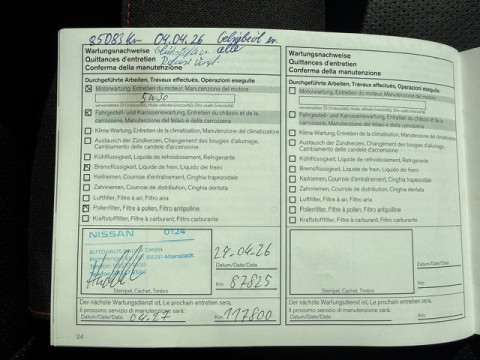 85083 km 04.04.26 Getriebeöl
Wartungsnachweise
Quittances d'entretien
Conferma della manutenzione
Durchgeführte Arbeiten, Travaux effectués, Operazioni eseguite
Motorwartung, Entretien du moteur, Manutenzione del motore
5W30
verwendetes Öl (Viskosität), Huile utilisée (viscosité), Olio usato (viscosità)
Fahrgestell- und Karosseriewartung, Entretien du châssis et de la
carrosserie, Manutenzione del telaio e della carrozzeria
Klima-Wartung, Entretien de la climatisation, Manutenzione del climatizzatore
Austausch der Zündkerzen, Changement des bougies d'allumage,
Cambiamento delle candele d'accensione
Kühlflüssigkeit, Liquide de refroidissement, Refrigerante
Bremsflüssigkeit, Liquide de frein, Liquido dei freni
Keilriemen, Courroie d'entraînement, Cinghia trapezoidale
Zahnriemen, Courroie de distribution, Cinghia dentata
Luftfilter, Filtre à air, Filtro aria
Pollenfilter, Filtre à pollen, Filtro antipolline
Kraftstofffilter, Filtre à carburant, Filtro carburante
NISSAN 0124
AUTOHAUS GMBH
Stempel, Cachet, Timbro
Datum/Date/Data:
Km: 87825
Der nächste Wartungsdienst ist, Le prochain entretien sera,
Il prossimo servizio di manutenzione sarà:
Datum/Date/Data: 04.27 Km: 117800
24
Wartungsnachweise
Quittances d'entretien
Conferma della manutenzione
Durchgeführte Arbeiten, Travaux effectués, Operazioni eseguite
Motorwartung, Entretien du moteur, Manutenzione del motore
verwendetes Öl (Viskosität), Huile utilisée (viscosité), Olio usato (viscosità)
Fahrgestell- und Karosseriewartung, Entretien du châssis et de la
carrosserie, Manutenzione del telaio e della carrozzeria
Klima-Wartung, Entretien de la climatisation, Manutenzione del
Austausch der Zündkerzen, Changement des bougies
Cambiamento delle candele d'accensione
Kühlflüssigkeit, Liquide de refroidissement, Refrigerante
Bremsflüssigkeit, Liquide de frein, Liquido dei freni
Keilriemen, Courroie d'entraînement, Cinghia trapezoidale
Zahnriemen, Courroie de distribution, Cinghia dentata
Luftfilter, Filtre à air, Filtro aria
Pollenfilter, Filtre à pollen, Filtro antipolline
Kraftstofffilter, Filtre à carburant, Filtro carburante
Datum/Date/Data
Km:
Stempel, Cachet, Timbro
Der nächste Wartungsdienst ist, Le prochain entretien sera,
Il prossimo servizio di manutenzione sarà:
Datum/Date/Data: Km: